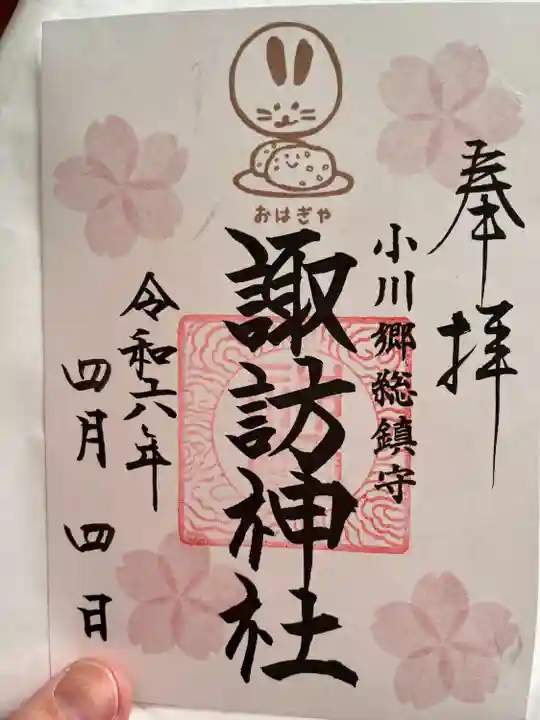 奉拝
小川郷総鎮守
おはぎや
諏訪神社
令和六年
四月四日